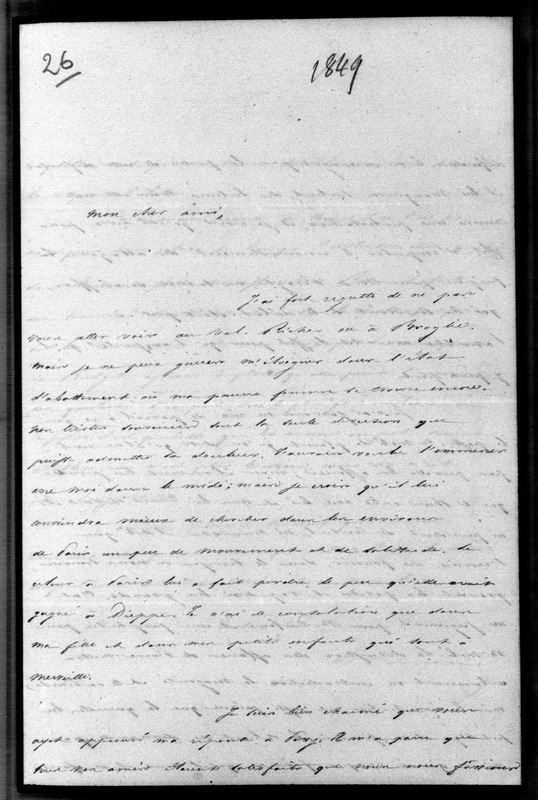 26
1849
mon cher ami,
J'ai fort regretté de ne pas
vous aller voir au Val Richer ou à Broglie.
mais je ne peux guerre m'éloigner dans l'état
d'abattement où ma pauvre femme se trouve encore.
ses tristes souvenirs sont la seule diversion que
puisse admettre sa douleur. J'aurais voulu l'emmener
avec moi dans le midi; mais je crois qu'il lui
conviendra mieux de chercher dans les environs
de Paris un peu de mouvement et de solitude. Le
retour à Paris lui a fait perdre le peu qu'elle avait
gagné à Dieppe. Je n'ai de consolation que dans
ma fille et dans mes petits enfants qui sont à
merveille.
Je suis bien charmé que vous
ayez approuvé ma réponse à Il m'a paru que
tous nos amis étaient satisfaits que nous nous